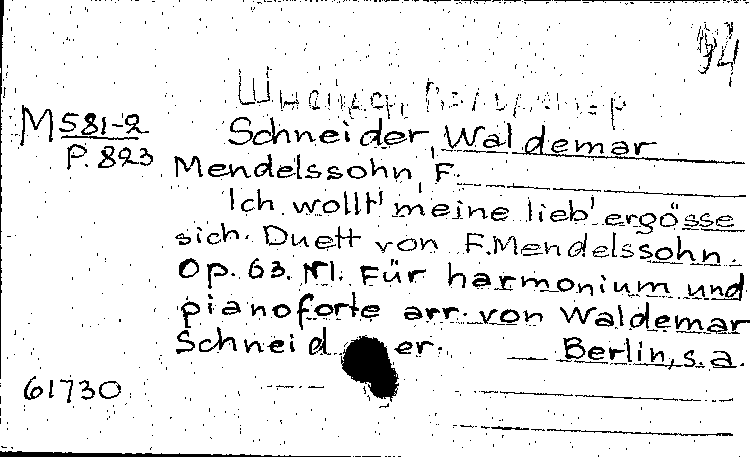 94
Schneider, Waldemar
M581-2
P. 823
Mendelssohn, F.
Ich wollt' meine lieb' ergösse
sich. Duett von F. Mendelssohn.
Op. 63. N1. Für harmonium und
pianoforte arr. von Waldemar
Schneider. Berlin, s.a.
61730